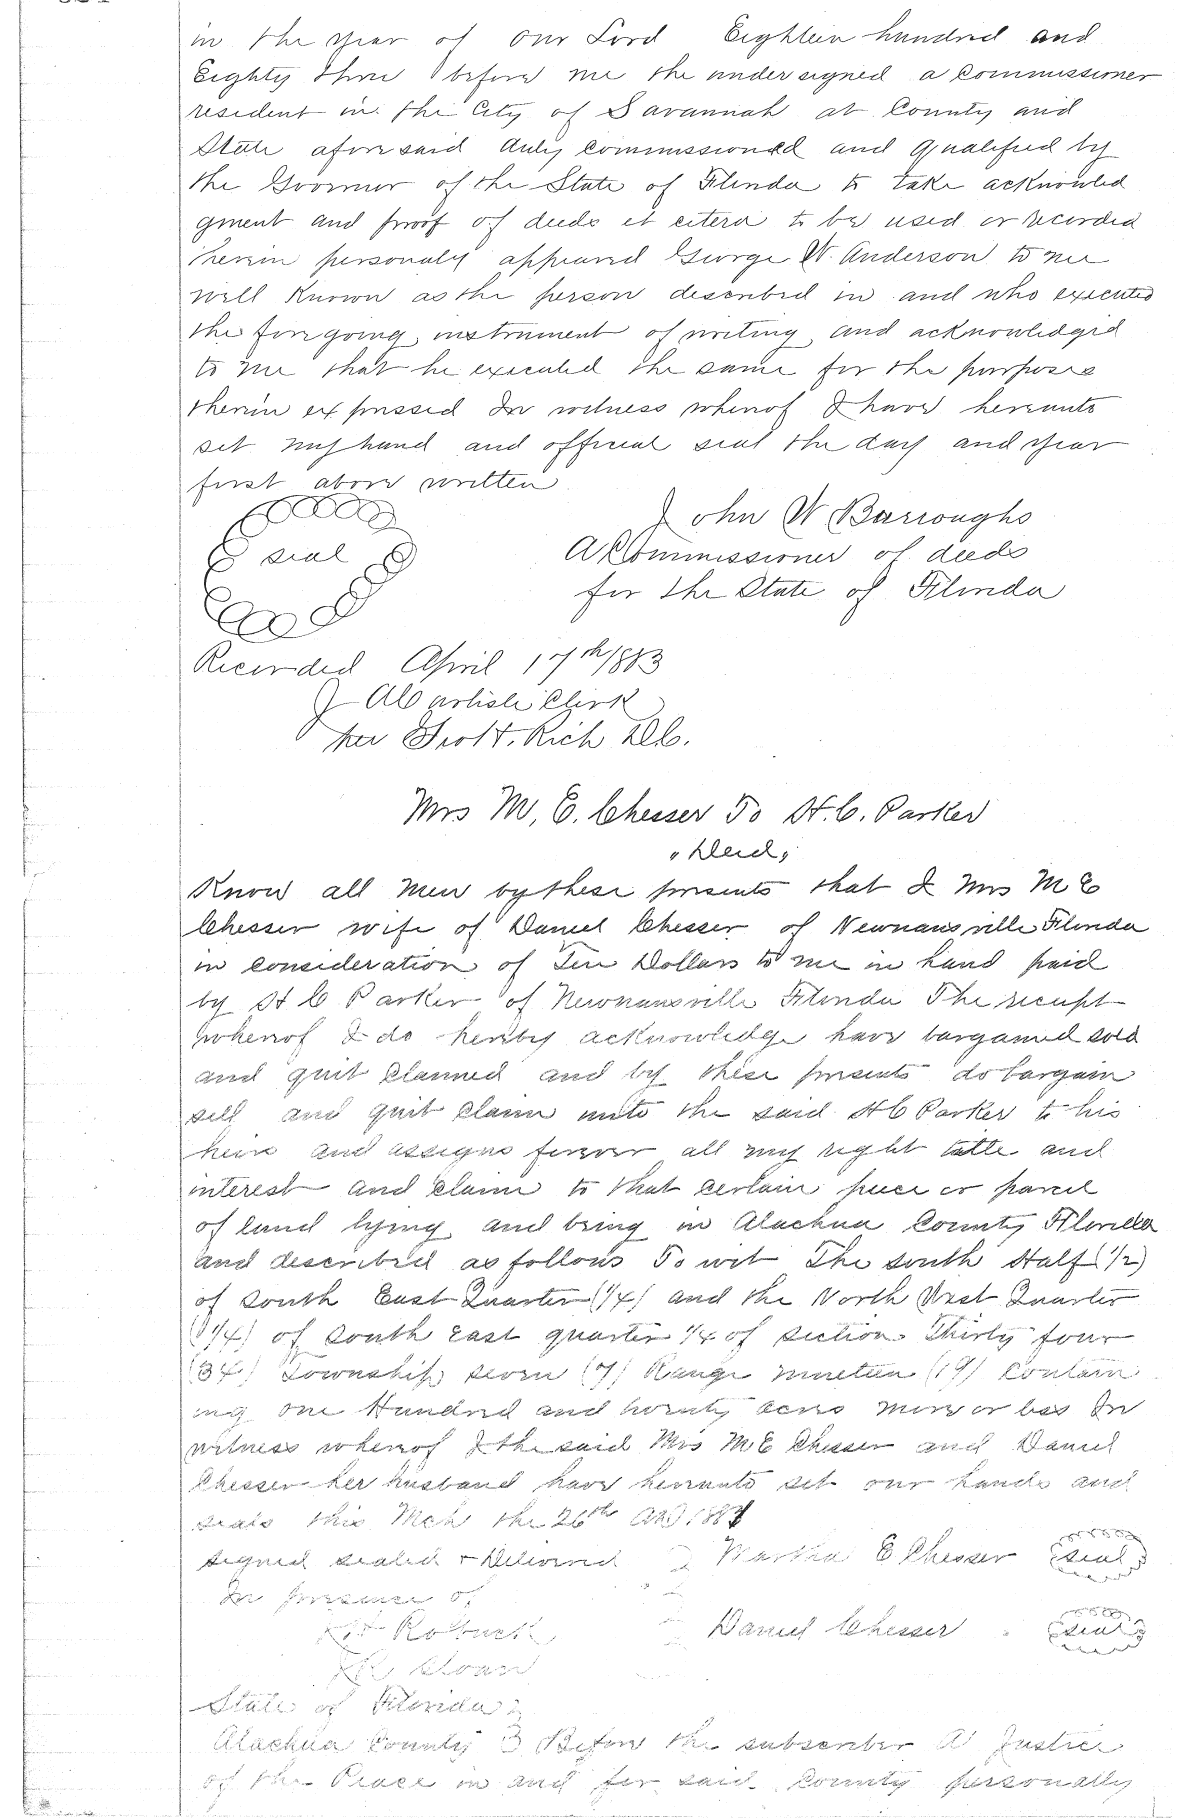 in the year of our Lord Eighteen hundred and
Eighty three before me the undersigned a Commissioner
resident in the City of Savannah at County and
State aforesaid duly commissioned and qualified by
the Governor of the State of Florida to take acknowled
gment and proof of deeds et cetera to be used or recorded
therein personaly appeared George W. Anderson to me
well Known as the person described in and who executed
the foregoing instrument of writing and acknowledged
to me that he executed the same for the purposes
therein expressed In witness whereof I have hereunto
set my hand and official seal the day and year
first above written
John W Burroughs
seal A Commissioner of deeds
for the State of Florida
Recorded April 17th/1883
J A Carlisle Clerk
per Scott. Rich D.C.
Mrs M. E. Chesser To H. C. Parker
"Deed"
Know all Men by these presents that I Mrs M E
Chesser wife of Daniel Chesser of Newnansville Florida
in consideration of Ten Dollars to me in hand paid
by H C Parker of Newnansville Florida The receipt
whereof I do hereby acknowledge have bargained sold
and quit claimed and by these presents do bargain
sell and quit claim unto the said H C Parker to his
heirs and assigns forever all my right title and
interest and claim to that certain piece or parcel
of land lying and being in Alachua County Florida
and described as follows To wit The South Half (1/2)
of South East Quarter (1/4) and the North West Quarter
(1/4) of South East quarter 1/4 of section Thirty four
(34) Township seven (7) Range nineteen (19) Contain
ing One Hundred and twenty acres more or less In
witness whereof I the said Mrs M E Chesser and Daniel
Chesser her husband have hereunto set our hands and
seals this Mch the 26th AD 188
Signed sealed + Delivered Martha E Chesser seal
In presence of
Daniel Chesser seal
State of Florida
Alachua County Before the subscriber A Justice
of the Peace in and for said County personally